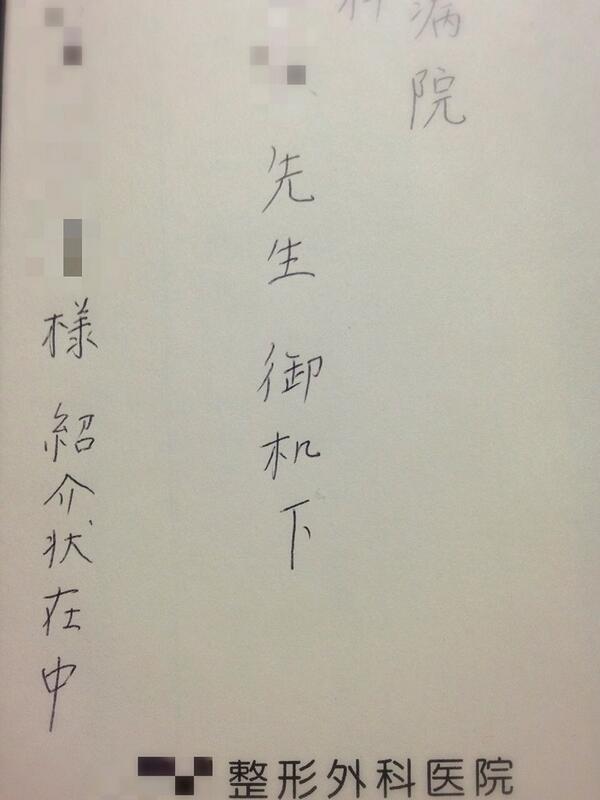 病院
科
先生 御机下
様 紹介状在中
整形外科医院